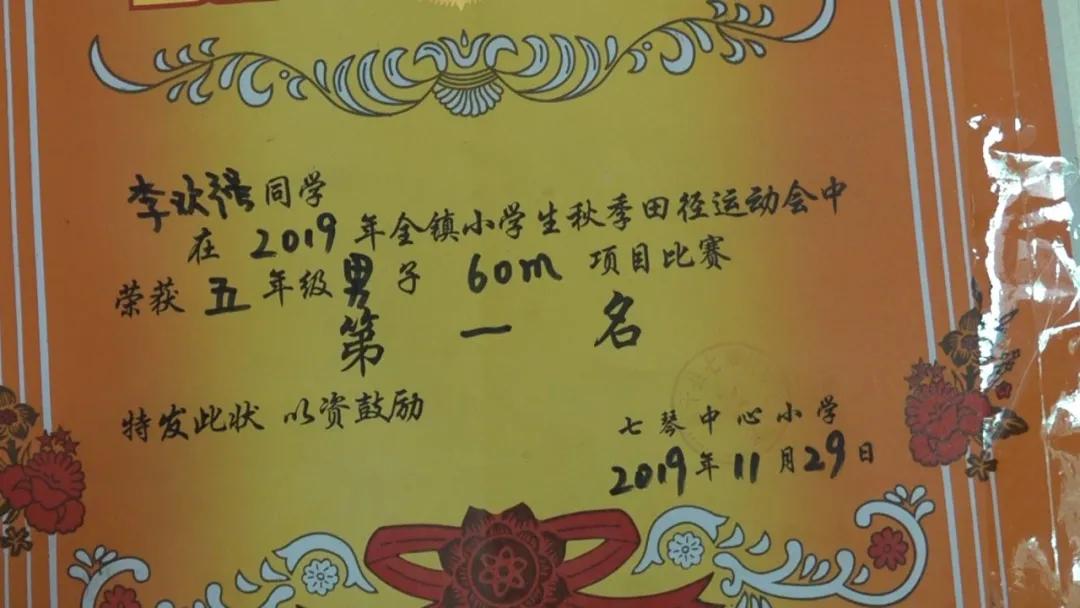 李欢强同学
在 2019 年全镇小学生秋季田径运动会中
荣获 五 年级 男 子 60m 项目比赛
第 一 名
特发此状 以资鼓励
七琴中心小学
2019 年 11 月 29 日